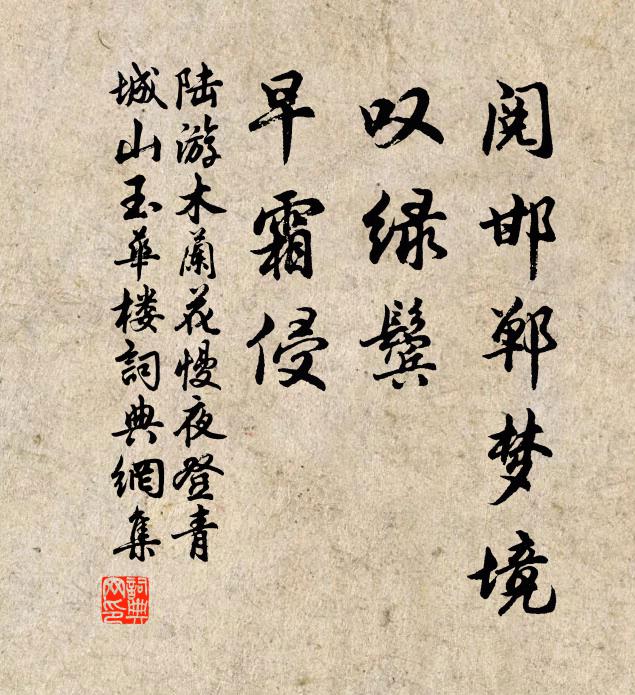 阅邯郸梦境
叹绿鬓
早霜侵
陆游木蘭花慢夜登青
城山玉華楼詞典網集
詞典
网印